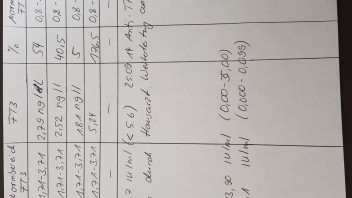 Normbereich FT3 % Norm
FT3
1,71-3,71 2.79 ng/dL 54 0,8-
1.71-3.71 2.52 ng/l 40.5 0,8-
1.71-3.71 1.81 ng/l 5 0,8-
1.71-3,71 5,24 176,5 0,8-
— — — —
7 IU/ml (<5.6) 25.09.14 Anti-TP
durch Hausarzt.
3,90 IU/ml (0,00-35,00)
1 IU/ml (0,000-0,099)